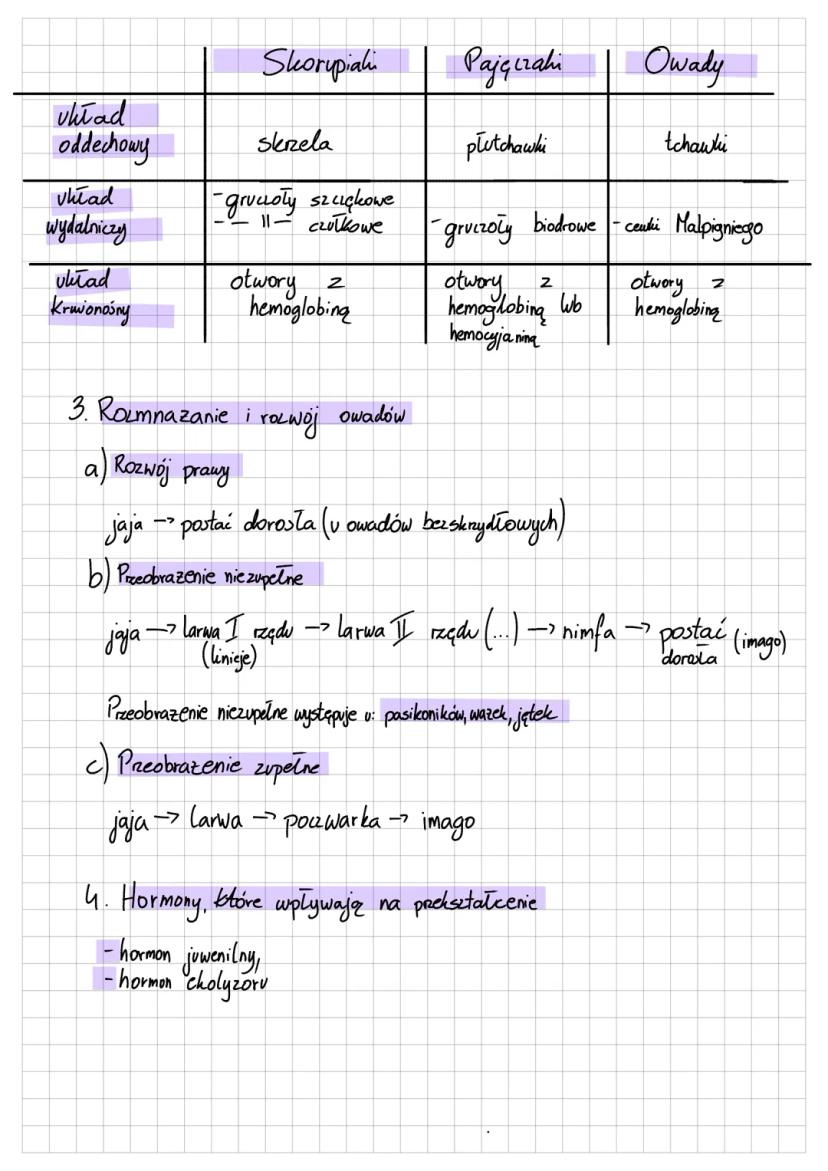 Skorupiaki Pajęczaki Owady
układ
oddechowy skrzela płutchawki tchawki
układ - gruczoły szczękowe
wydalniczy - — 11 — czułkowe - gruczoły biodrowe - cewki Malpigniego
układ otwory z otwory z otwory z
krwionośny hemoglobiną hemoglobiną lub hemoglobiną
hemocyjaniną
3. Rozmnażanie i rozwój owadów
a) Rozwój prawy
jaja -> postać dorosła (u owadów bezskrzydłowych)
b) Przeobrażenie niezupełne
jaja -> larwa I rzędu -> larwa II rzędu (...) -> nimfa -> postać (imago)
(linieje) dorosła
Przeobrażenie niezupełne występuje u: pasikoników, ważek, jętek
c) Przeobrażenie zupełne
jaja -> larwa -> poczwarka -> imago
4. Hormony, które wpływają na przekształcenie
- hormon juwenilny,
- hormon ekolyzoru